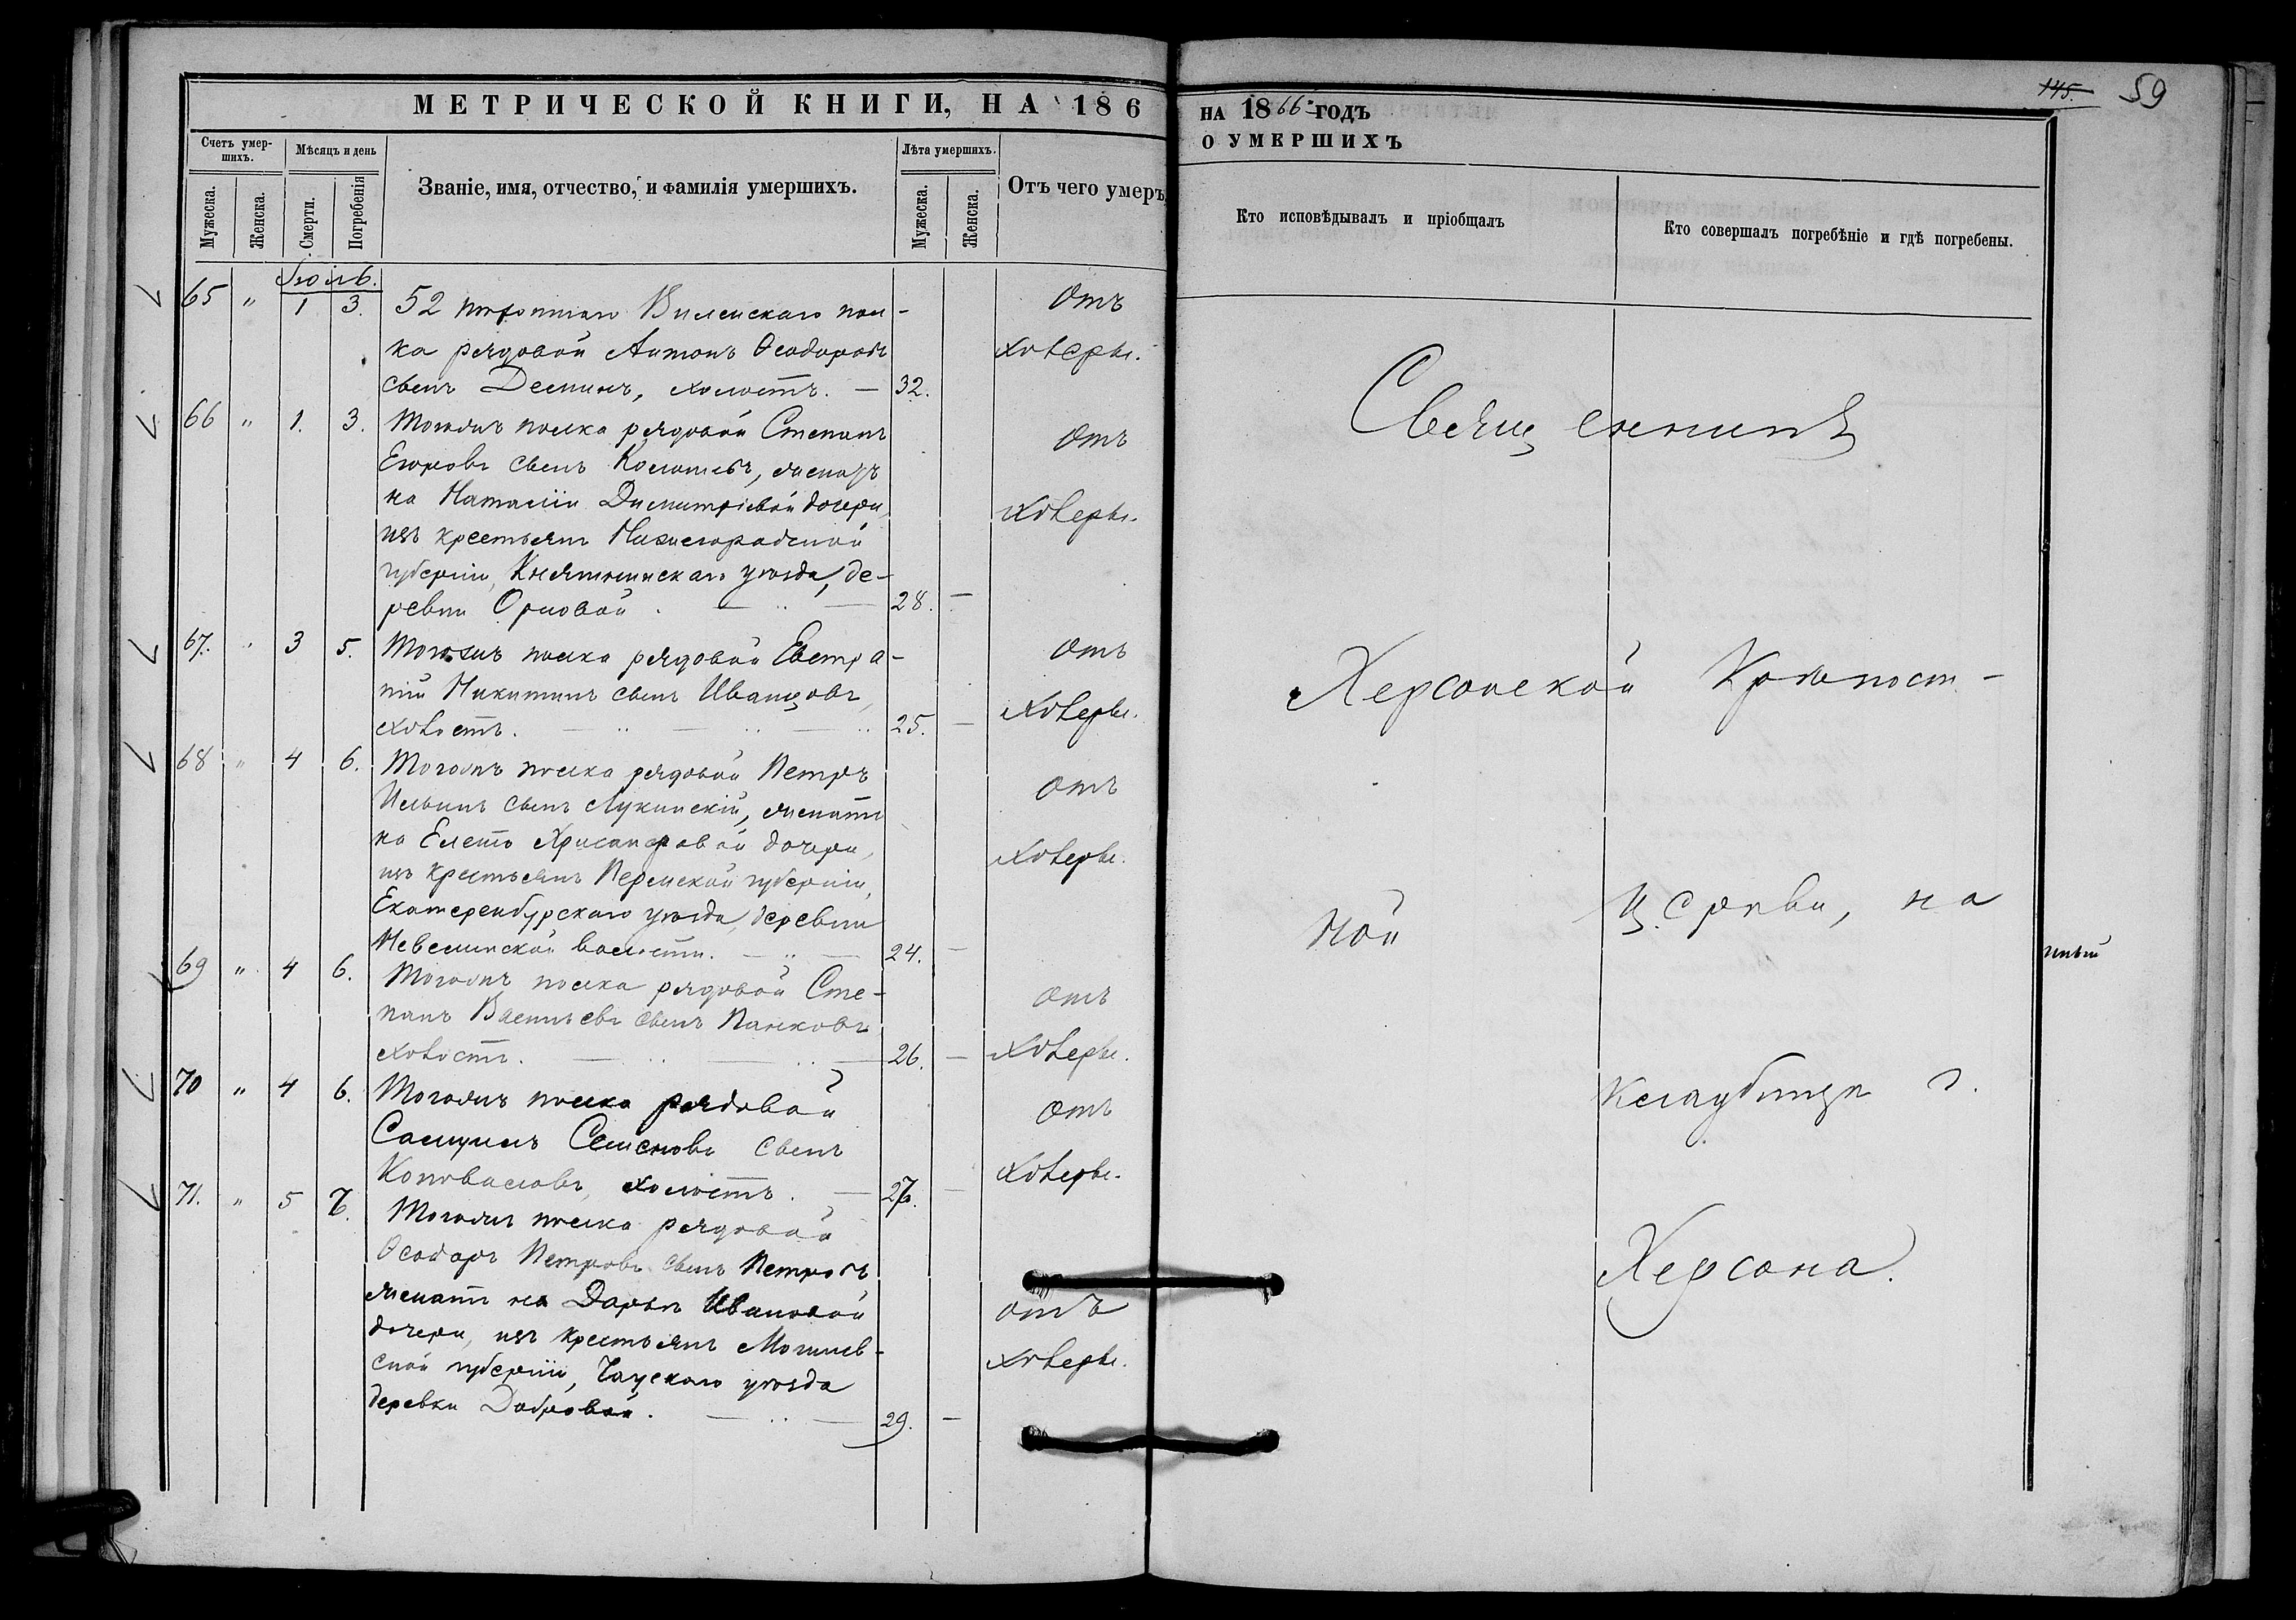 МЕТРИЧЕСКОЙ КНИГИ, НА 186
Счетъ умер-
шихъ.
Мѣсяцъ и день
Званіе, имя, отчество, и фамилія умершихъ.
Лѣта умершихъ.
Отъ чего умеръ
Мужеска.
Женска.
Смерти.
Погребенія
Мужеска.
Женска.
Іюль.
65 " 1 3. 52 пѣхотнаго Виленскаго пол- Отъ
ка рядовой Антонъ Ѳеодоровъ холеры.
сынъ Деминъ, холостъ. — 32.
66 " 1. 3. Тогожъ полка рядовой Степанъ Отъ
Егоровъ сынъ женатъ
на Наталіи Димитріевой дочери, холеры.
изъ крестьянъ Нижегородской
губерніи, Княгининскаго уѣзда, де-
ревни Орловой. — 28. —
67. " 3 5. Тогожъ полка рядовой Евстра- Отъ
тій Никитинъ сынъ Иванцовъ, холеры.
холостъ. — 25. —
68 " 4 6. Тогожъ полка рядовой Петръ Отъ
Ильинъ сынъ Лукинскій, женатъ
на дочери, холеры.
изъ крестьянъ Пермской губерніи,
Екатеренбурскаго уѣзда, деревни
волости. — 24. —
69 " 4 6. Тогожъ полка рядовой Сте- Отъ
панъ Васильевъ сынъ Панковъ
холостъ. — 26. — холеры.
70 " 4 6. Тогожъ полка рядовой Отъ
Самуилъ Семеновъ сынъ
Коноваловъ, холостъ. — 27. — холеры.
71. " 5 7. Тогожъ полка рядовой
Ѳеодоръ Петровъ сынъ Петровъ
женатъ на Дарьѣ Ивановой отъ
дочери, изъ крестьянъ Могилев-
ской губерніи, Чаускаго уѣзда холеры.
деревни Добровой. — 29. —
145. 59
НА 1866 ГОДЪ
О УМЕРШИХЪ
Кто исповѣдывалъ и пріобщалъ
Кто совершалъ погребѣніе и гдѣ погребены.
Священникъ
Херсонской Крѣпост-
ной Церкви, на
Кладбищѣ г.
Херсона.